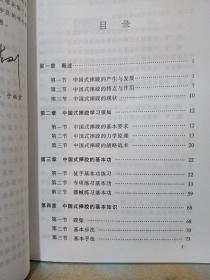 目录
第一章 概述 1
第一节 中国式摔跤的产生与发展 1
第二节 中国式摔跤的特点与作用
第三节 中国式摔跤的现状
第二章 中国式摔跤学习须知
第一节 中国式摔跤的基本要求
第二节 中国式摔跤的力学原理
第三节 中国式摔跤的战略战术
第三章 中国式摔跤的基本功 22
第一节 徒手基本功练习 22
第二节 专项练习基本功
第三节 器械练习基本功
第四章 中国式摔跤的基本知识 68
第一节 跤架 68
第二节 基本步法
第三节 基本手法